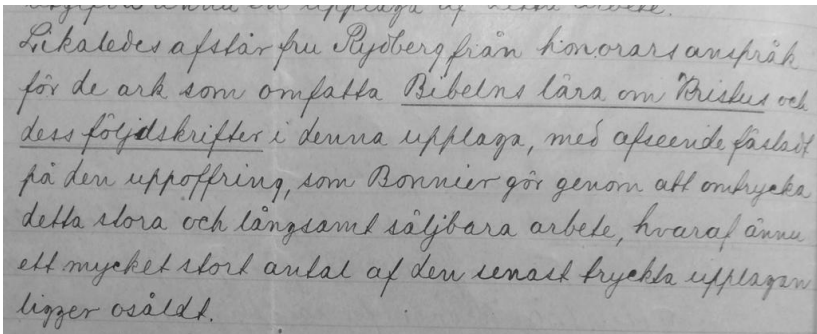 utgifva ännu en upplaga af detta arbete.
Likaledes afstår fru Rydberg från honorarsanspråk
för de ark som omfatta Bibelns lära om Kristus och
dess följdskrifter i denna upplaga, med afseende fästadt
på den uppoffring, som Bonnier gör genom att omtrycka
detta stora och långsamt säljbara arbete, hvaraf ännu
ett mycket stort antal af den senast tryckta upplagan
ligger osåldt.